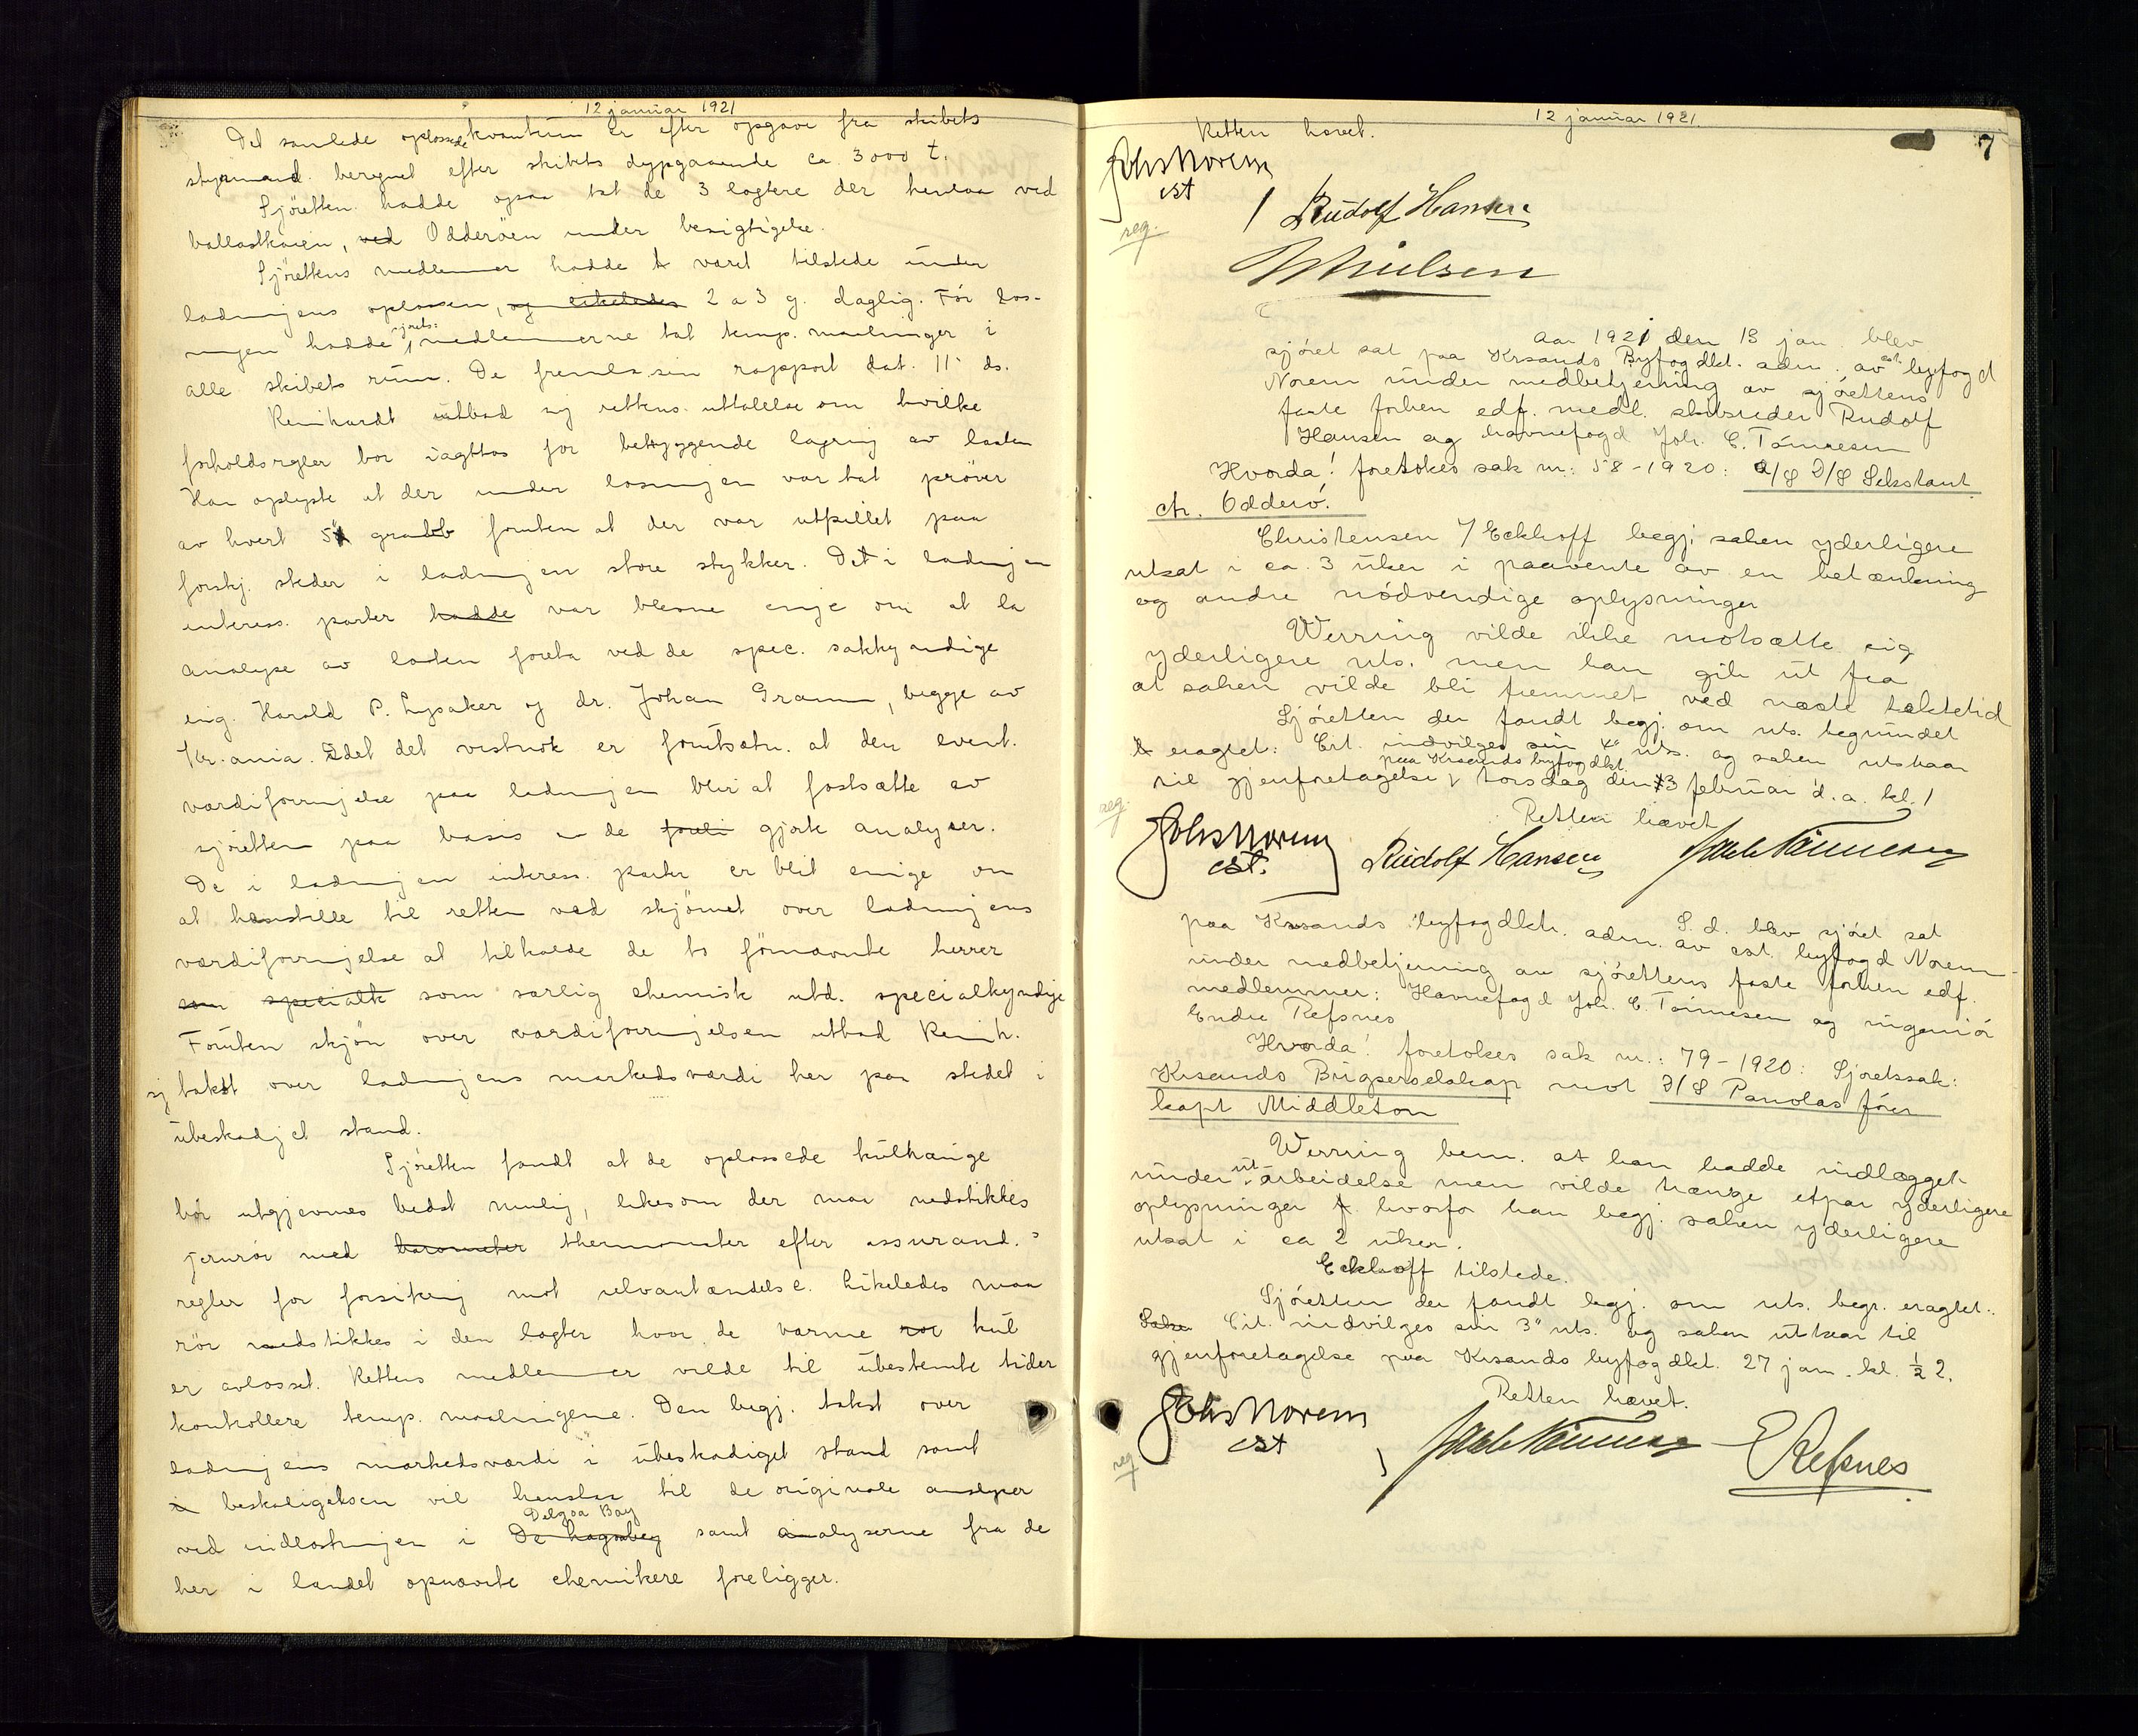 12 januar 1921
Det samlede oplossede kvantum er efter opgave fra skibets
styrmand beregnet efter skibets dypgaaende ca. 3000 t.
Sjöretten hadde ogsaa tat de 3 lagtere der henlaa ved
ballastkaien, ved Odderöen under besigtigelse.
Sjörettens medlemmer hadde været tilstede under
ladningens oplossen, og likeledes 2 a 3 g. daglig. Før los-
ningen hadde sjörets: medlemmerne tat temp. maalinger i
alle skibets rum. De fremla sin rapport dat. 11' ds.
Reinhardt utbad sig rettens uttalelse om hvilke
forholdsregler bör iagttas for betryggende lagring av lasten
Han oplyste at der under losningen var tat pröver
av hvert 5 grabb foruten at der var utpillet paa
forskj. steder i ladningen store stykker. De i ladningen
interess. parter hadde var blevne enige om at la
analyse av lasten foreta ved de spec. sakkyndige
ing. Harald P. Lysaker og dr. Johan Gramm, begge av
Kr.ania. Idet det vistnok er forutsætn. at den event.
værdiforringelse paa ladningen blir at fastsætte av
sjöretten paa basis av de gjorte analyser.
De i ladningen interess. parter er blit enige om
at henstille til retten ved skjönnet over ladningens
værdiforringelse at tilkalde de to förnævnte herrer
som specielt som særlig chemisk utd. specialkyndige
Foruten skjön over værdiforringelsen utbad Reinh.
sig takst over ladningens markedsværdi her paa stedet i
ubeskadiget stand.
Sjöretten fandt at de oplossede kulhauge
bör utgjevnes bedst mulig, likesom der maa nedstikkes
jernrör med barometer thermometer efter assurand.s
regler for forsikring mot selvantændelse. Likeledes maa
rör nedstikkes i den lagter hvor de varme kul
er avlosset. Rettens medlemmer vilde til ubestemte tider
kontrollere temp. maalingene. Den begj. takst over
ladningens markedsværdi i ubeskadiget stand samt
i beskadigelsen vil henstaa til de originale analyser
Delgoa Bay
ved indlastningen i De lagoabay samt analyserne fra de
her i landet opnævnte chemikere foreligger.
12 januar 1921.
7
Retten hævet.
Johs Norem
cst
reg.
Rudolf Hansen
Nielsen
Aar 1921 den 13 jan. blev
sjöret sat paa Krsands Byfogdkt. adm. av cst. byfogd
Norem under medbetjening av sjörettens
faste forhen edf. medl. skibsreder Rudolf
Hansen og havnefogd Joh. C. Tönnesen
Hvorda! foretokes sak nr: 58-1920: A/S D/S Sekstant
ctr. Odderö.
Christensen f/ Eckhoff begj. saken yderligere
utsat i ca. 3 uker i paavente av en betænkning
og andre nödvendige oplysninger
Werring vilde ikke motsætte sig
yderligere uts. men han gik ut fra
at saken vilde bli fremmet ved næste tektetid
Sjöretten der fandt begj. om uts. begrundet
eragtet: Cit. indvilges sin uts. og saken utstaar
paa Krsands byfogdkt.
til gjenforetagelse torsdag den 3 februar d. a. kl. 1
reg.
Retten hævet
Johs Norem
cst.
Rudolf Hansen
Joh C Tönnesen
S. d. blev sjöret sat
paa Krsands byfogdktr. adm. av cst. byfogd Norem
under medbetjening av sjörettens faste forhen edf.
medlemmer: Havnefogd Joh. C. Tönnesen og ingeniör
Endre Refsnes
Hvorda! foretokes sak nr.: 79-1920: Sjöretssak:
Krsands Bugserselskap mot D/S Panolas förer
kapt Middleton
Werring bem. at han hadde indlægget
under ut-arbeidelse men vilde trænge etpar yderligere
oplysninger hvorfor han begj. saken yderligere
utsat i ca 2 uker.
Eckhoff tilstede.
Sjöretten der fandt begj. om uts. begr. eragtet:
Saken Cit. indvilges sin 3" uts. og saken utstaar til
gjenforetagelse paa Krsands byfogdkt. 27 jan. kl. ½ 2.
Retten hævet.
Johs Norem
cst
reg
Joh C Tönnesen
E Refsnes